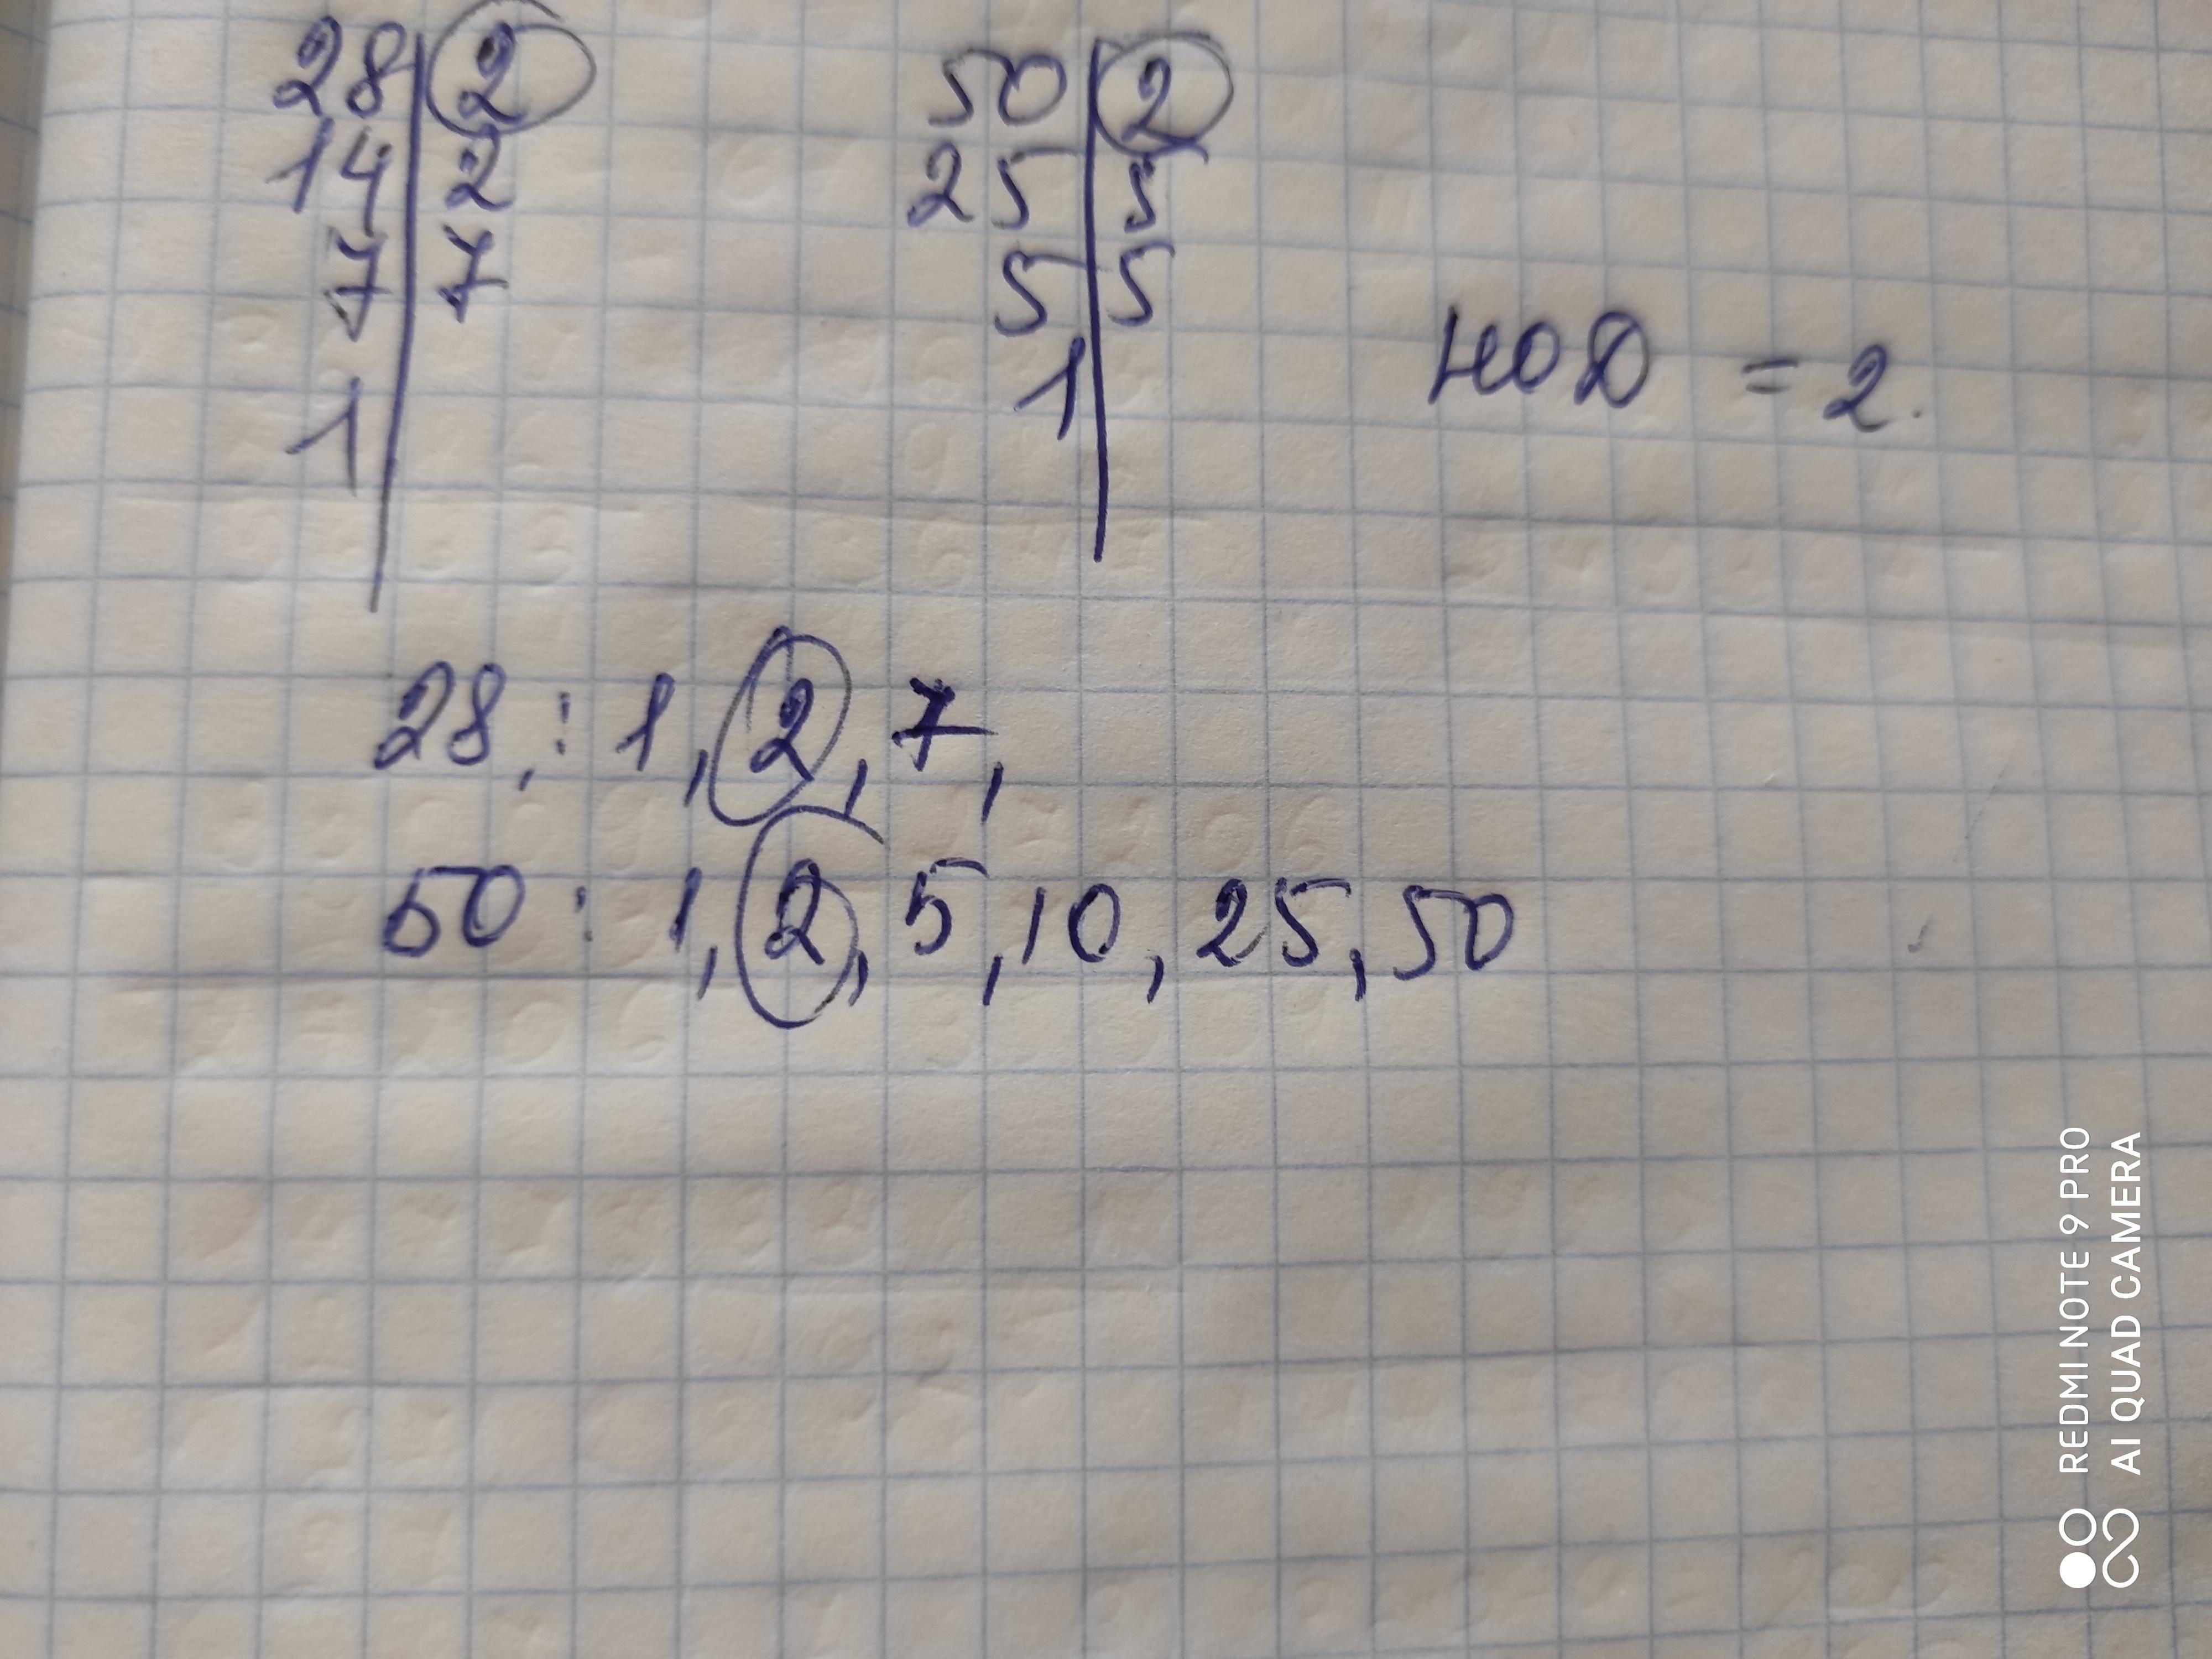 28 | 2
14 | 2
7 | 7
1
50 | 2
25 | 5
5 | 5
1
НОД = 2.
28,: 1, 2, 7,
50 : 1, 2, 5, 10, 25, 50
REDMI NOTE 9 PRO
AI QUAD CAMERA